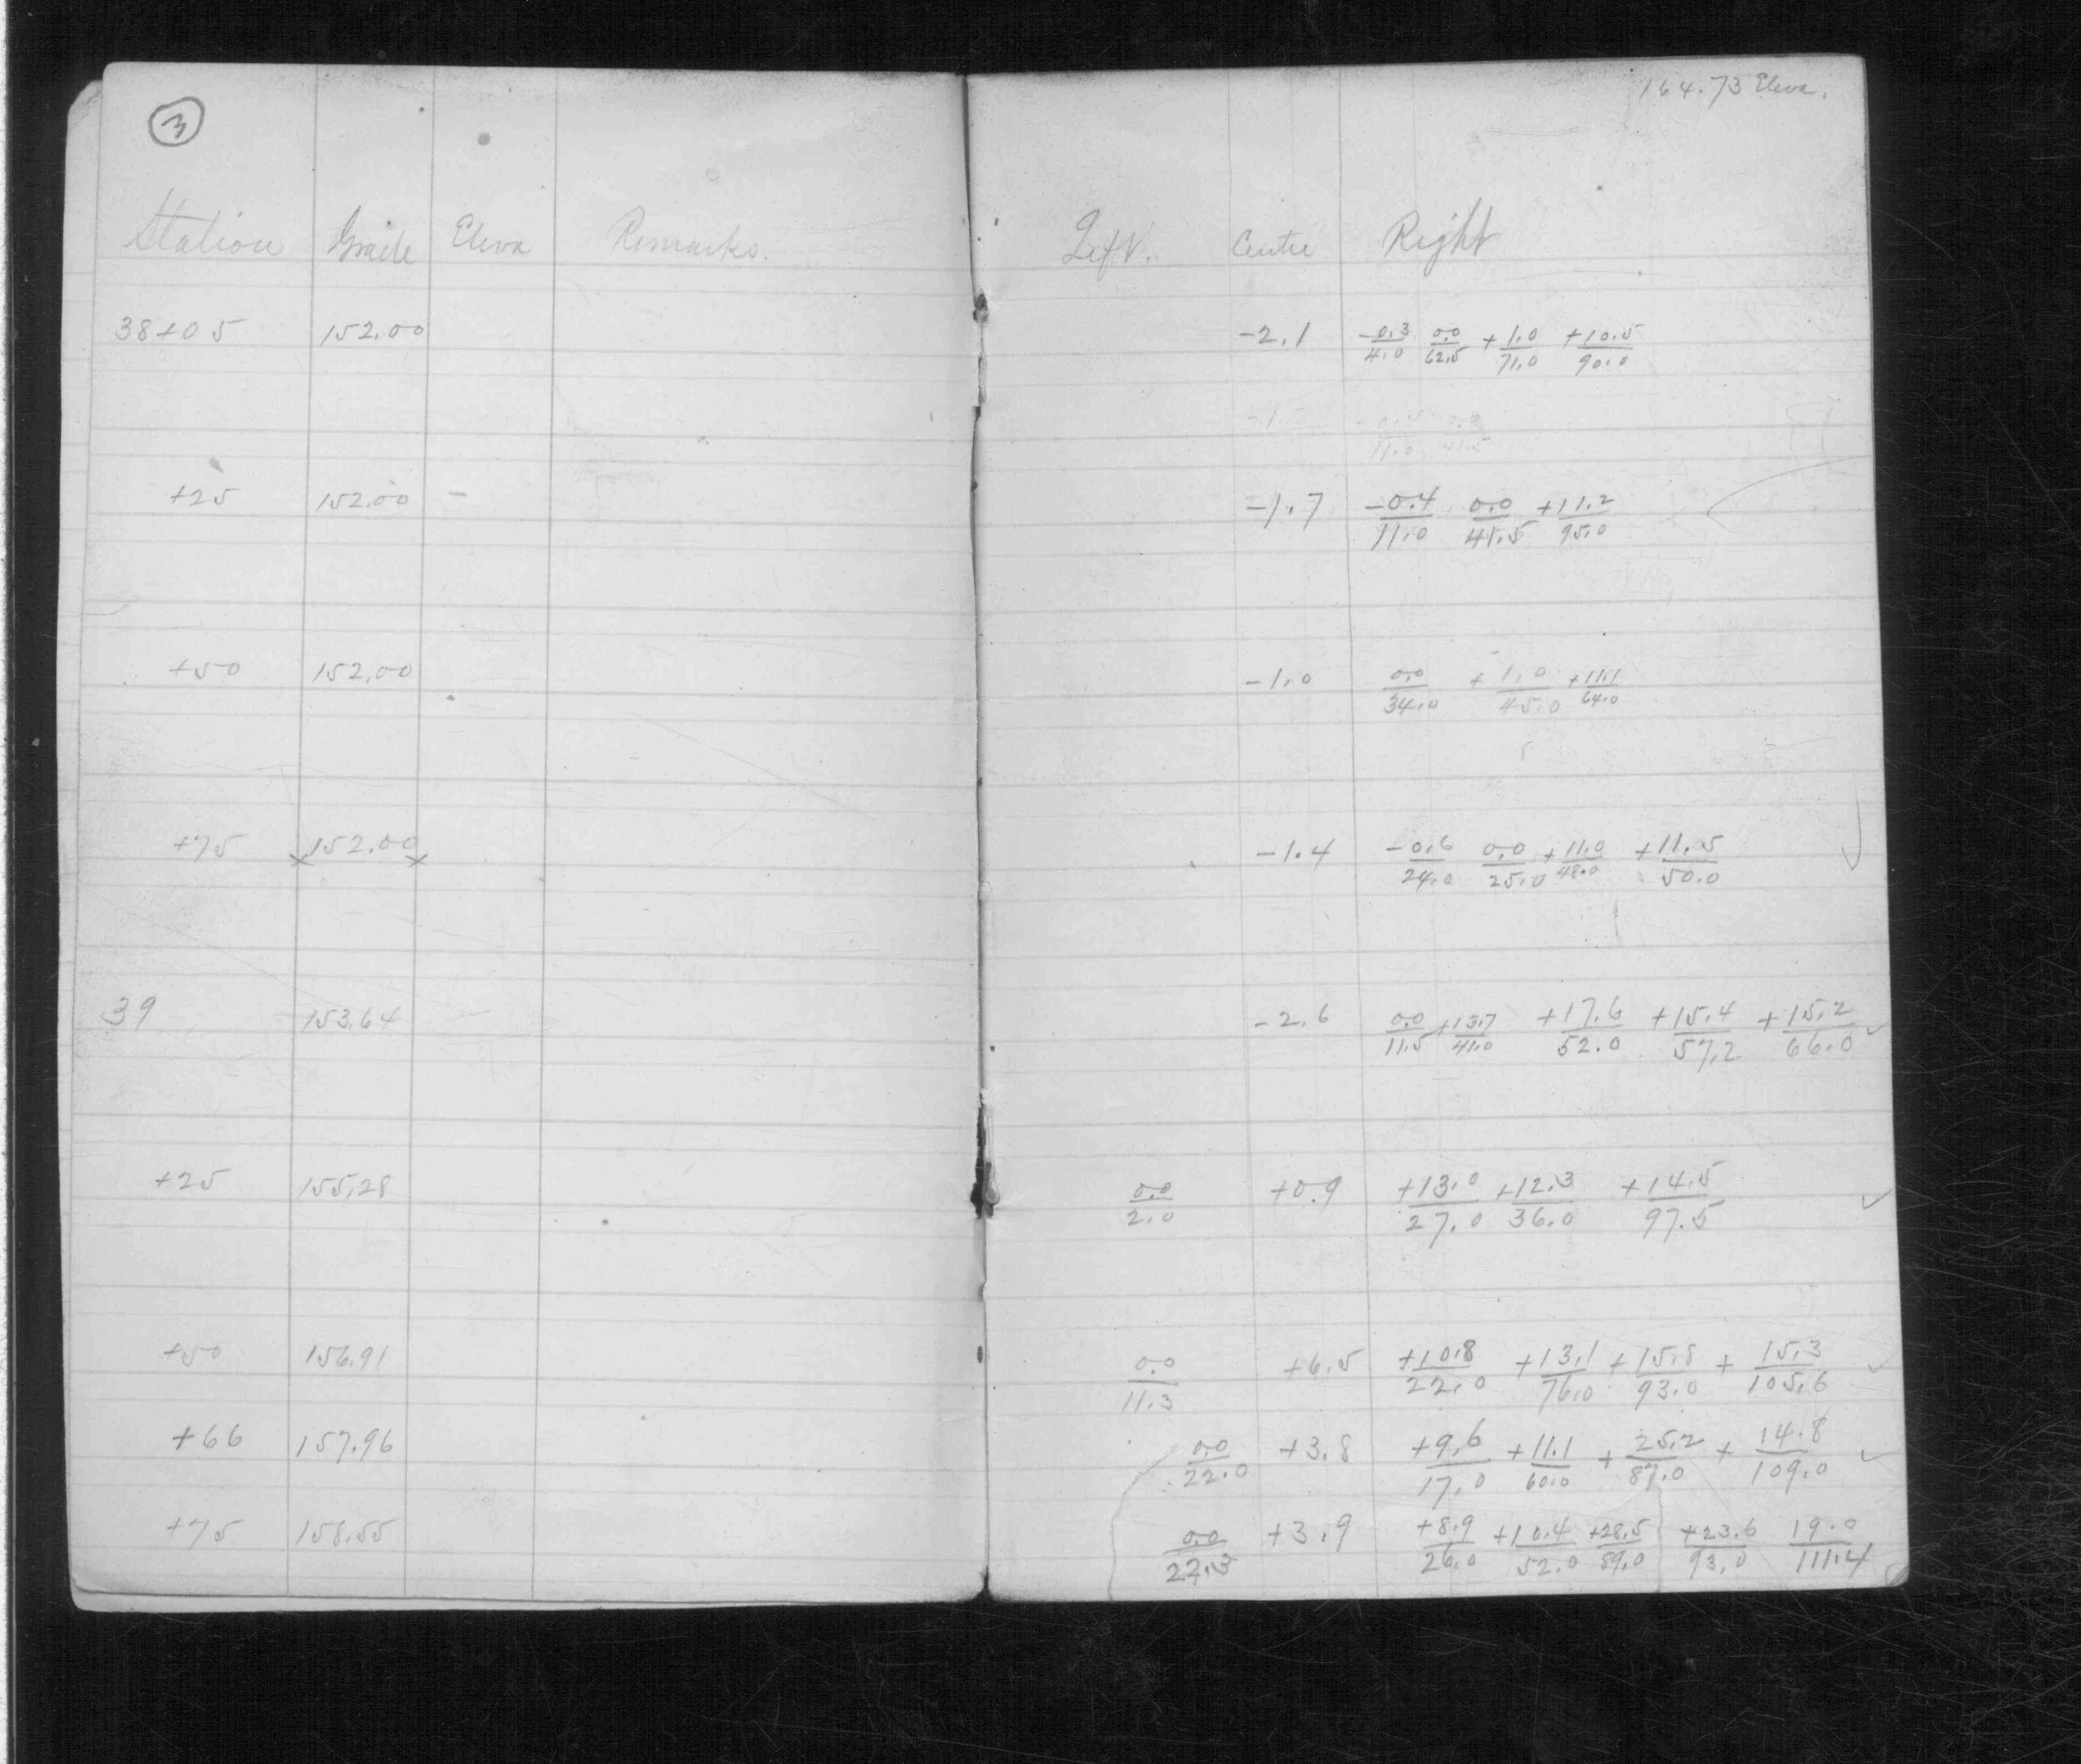 3
164.73 Eleva.
Station Grade Eleva Remarks. Left. Centre Right
38+05 152.00 -2.1 -0.3/4.0 0.0/62.5 +1.0/71.0 +10.5/90.0
11.0 41.5
+25 152.00 - -1.7 -0.4/11.0 0.0/41.5 +11.2/95.0
+50 152.00 -1.0 0.0/34.0 +1.0/45.0 +11.1/64.0
+75 152.00 -1.4 -0.6/24.0 0.0/25.0 +11.0/48.0 +11.05/50.0
39 153.64 -2.6 0.0/11.5 +13.7/41.0 +17.6/52.0 +15.4/57.2 +15.2/66.0 ✓
+25 155.28 0.0/2.0 +0.9 +13.0/27.0 +12.3/36.0 +14.5/97.5 ✓
+50 156.91 0.0/11.3 +6.5 +10.8/22.0 +13.1/76.0 +15.8/93.0 +15.3/105.6 ✓
+66 157.96 0.0/22.0 +3.8 +9.6/17.0 +11.1/60.0 +25.2/87.0 +14.8/109.0 ✓
+75 158.55 0.0/22.3 +3.9 +8.9/26.0 +10.4/52.0 +28.5/89.0 +23.6/93.0 19.0/111.4